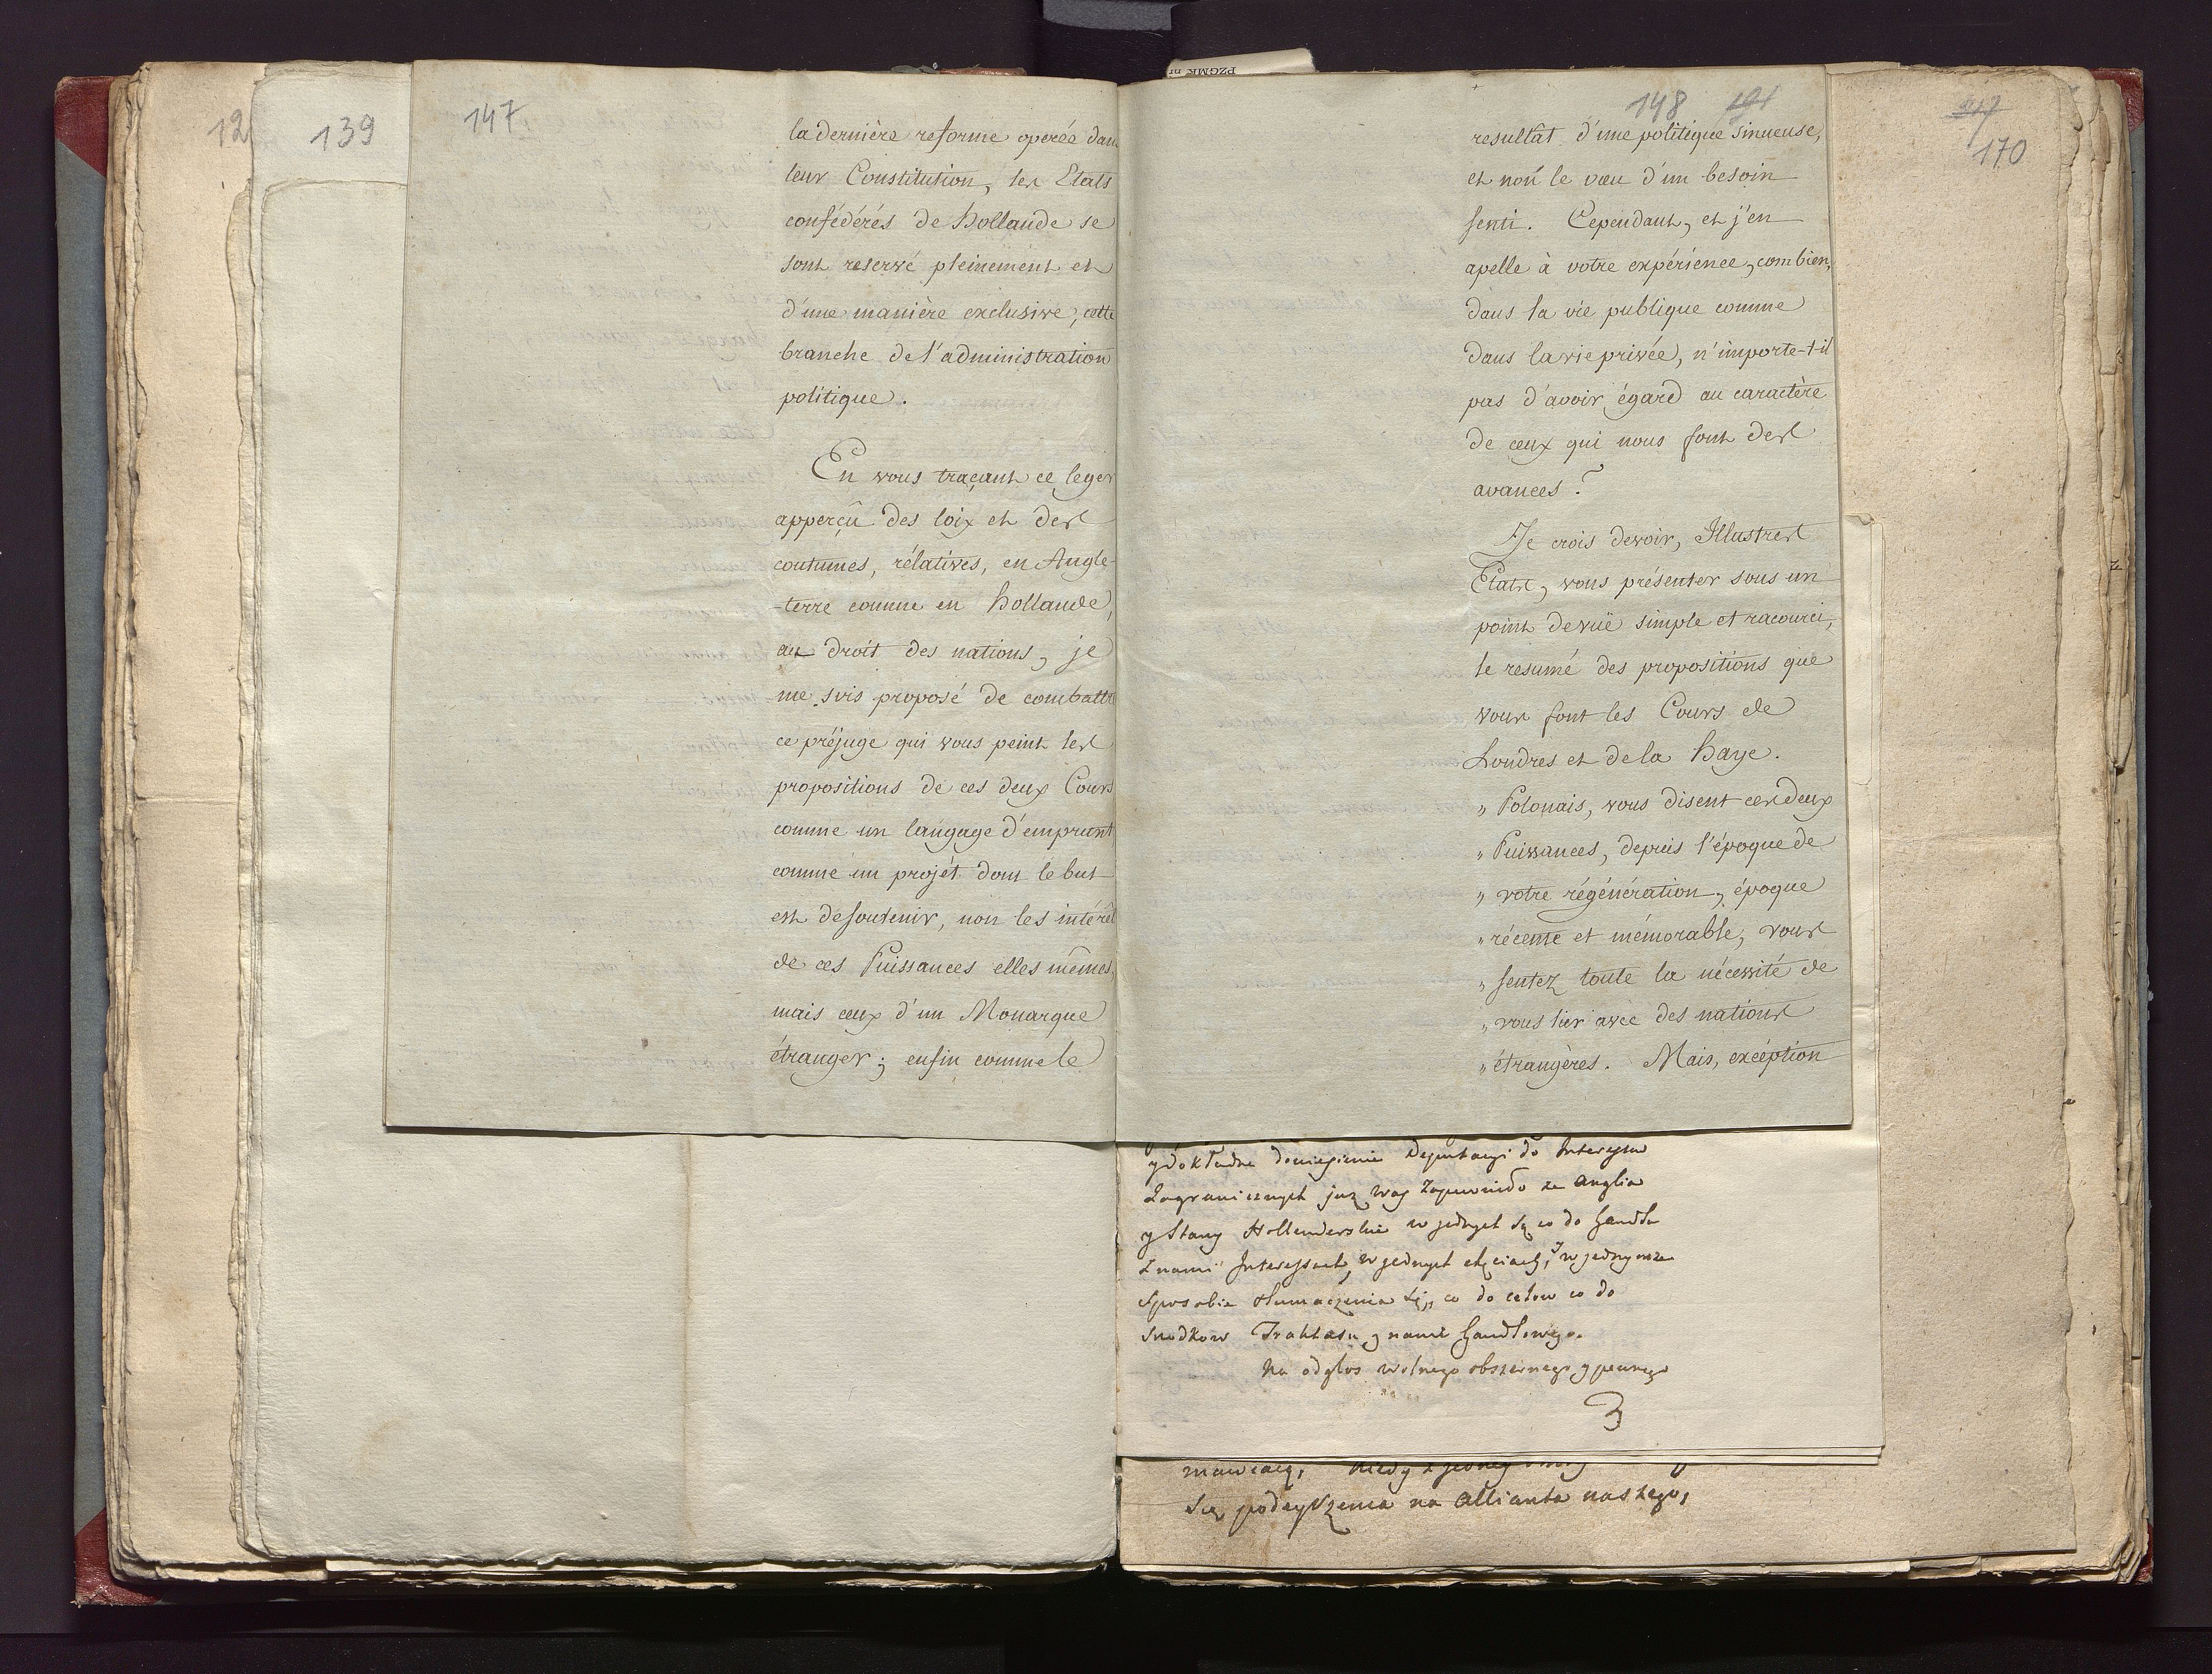 12
139
147
la dernière reforme operée dans
leur Constitution, les Etats
confédérés de Hollande se
sont reservé pleinement et
d'une manière exclusive, cette
branche de l'administration
politique.
En vous traçant ce leger
apperçû des loix et des
coutumes, rélatives, en Angle-
-terre comme en Hollande,
au droit des nations, je
me suis proposé de combattre
ce préjuge qui vous peint les
propositions de ces deux Cours
comme un langage d'emprunt
comme un projét dont le but
est de soutenir, non les intérêt
de ces Puissances elles mêmes,
mais ceux d'un Monarque
étranger; enfin comme le
148 191
resultât d'une politique sinueuse,
et non le vœu d'un besoin
senti. Cependant, et j'en
apelle à votre expérience, combien,
dans la vie publique comme
dans la vie privée, n'importe-t-il
pas d'avoir égard au caractère
de ceux qui nous font des
avances?
Je crois devoir, Illustres
Etats, vous présenter sous un
point de vuë simple et racourci,
le resumé des propositions que
vous font les Cours de
Londres et de la Haye.
„ Polonais, vous disent ces deux
„ Puissances, depuis l'époque de
„ votre régénération, époque
„ récente et mémorable, vous
„ sentez toute la nécessité de
„ vous lier avec des nations
„ étrangères. Mais, excéption
170
PZGMK nr
y dokładne doniesienie Deputacyi do Interessow
Zagranicznych juz was zapewniło ze Anglia
y Stany Hollenderskie w jednych są co do handlu
z nami Interessach, w jednych chęciach, y w jednymze
sposobie tłumaczenia się, co do celow co do
srodkow Traktatu z nami handlowego.
Na odgłos wolnego obszernego y pewnego
3
mawiaią, kiedy z jedney
się podeyrzenia na Allianta naszego,